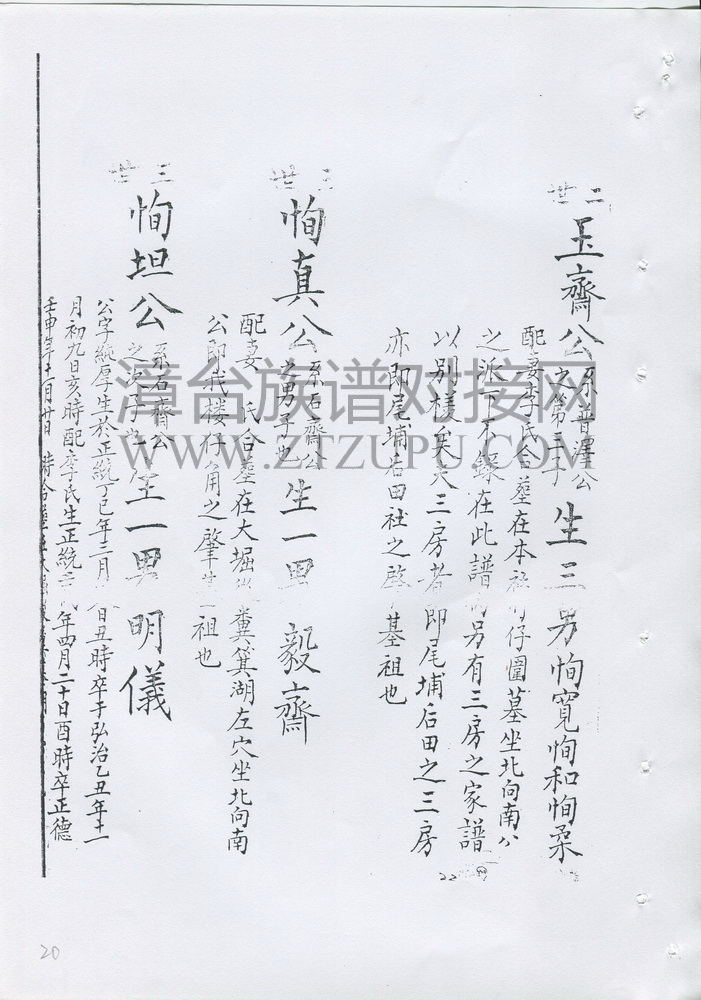 二世
玉齋公系普澤公之第三子生三男恂寬恂和恂柔
配妻李氏合墓在本社仔圍墓坐北向南公
之派下不錄在此譜另有三房之家譜
以別樣矣夫三房者即尾埔后田之三房
亦即尾埔后田社之啓基祖也
三世
恂真公系石齋公之男子也生一男毅齋
配妻氏合墓在大堀糞箕湖左穴坐北向南
公即我樓仔角之肇祖也
三世
恂坦公系石齋公之次子生一男明儀
公字純厚生於正統丁巳年三月日丑時卒于弘治乙丑年十一
月初九日亥時配李氏生正統年四月二十日酉時卒正德
壬申年十一月廿日時合墓
漳台族谱对接网
WWW.ZTZUPU.COM
20